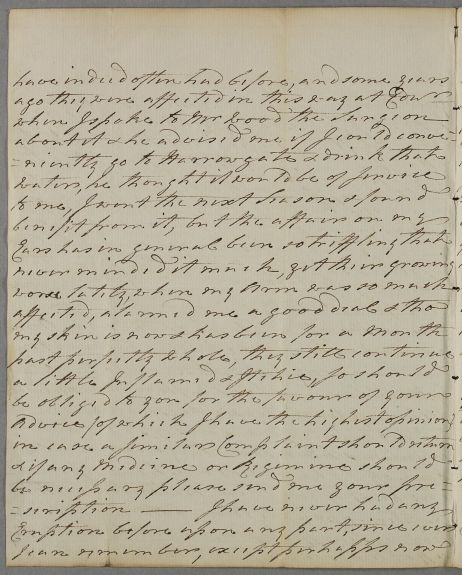 have indeed often had before, and some years
ago they were affected in this way at
when I spoke to Mr Wood the Surgeon
about it & he advised me if I could conve=
=niently go to Harrowgate & drink that
water, he thought it would be of Service
to me, I went the next Season & found
benefit from it, but the affair on my
Ears has in general been so triffling that
never minded it much, yet their growing
worse lately, when my Arm was so much
affected, alarmed me a good deal & tho
my skin is now & has been for a Month
past perfectly whole, they still continue
a little Inflamed & Itchie, so should
be obliged to you for the favour of your
Advice (of which I have the highest opinion)
in case a similar Complaint should return
& if any Medicine or Regimine should
be necessary please send me your pre=
=scription — I have never had any
Eruption before upon any part, since ever
I can remember, except perhapps now